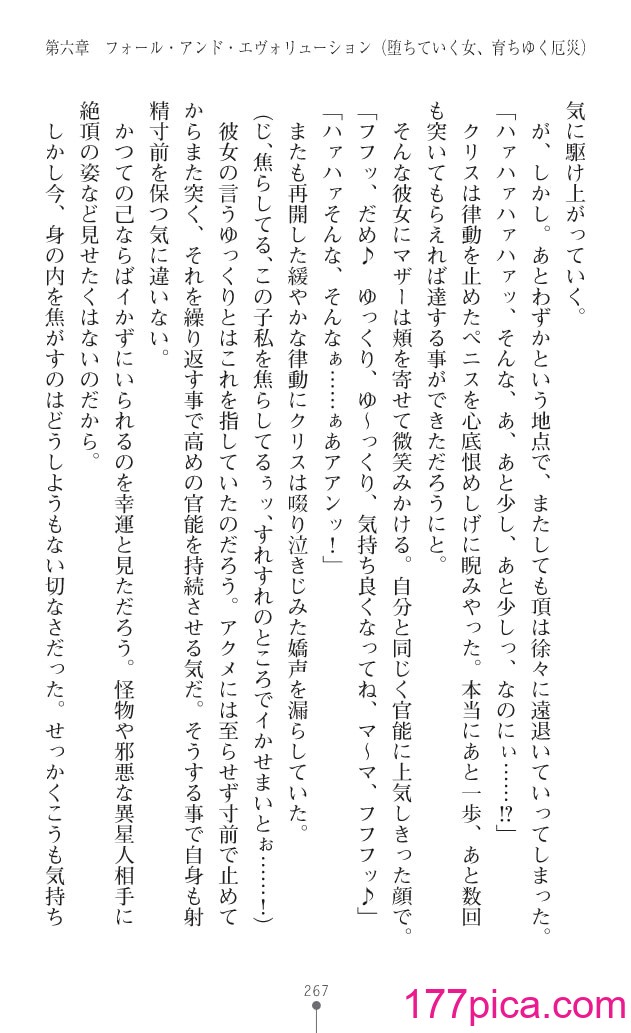 第六章　フォール・アンド・エヴォリューション（堕ちていく女、育ちゆく厄災）
気に駆け上がっていく。
　が、しかし。あとわずかという地点で、またしても頂は徐々に遠退いていってしまった。
「ハァハァハァハァッ、そんな、あ、あと少し、あと少しっ、なのにぃ……⁉」
　クリスは律動を止めたペニスを心底恨めしげに睨みやった。本当にあと一歩、あと数回
も突いてもらえれば達する事ができただろうにと。
　そんな彼女にマザーは頬を寄せて微笑みかける。自分と同じく官能に上気しきった顔で。
「フフッ、だめ♪　ゆっくり、ゆ～っくり、気持ち良くなってね、マ～マ、フフフッ♪」
「ハァハァそんな、そんなぁ……ぁあアアンッ！」
　またも再開した緩やかな律動にクリスは啜り泣きじみた嬌声を漏らしていた。
（じ、焦らしてる、この子私を焦らしてるぅッ、すれすれのところでイかせまいとぉ……！）
　彼女の言うゆっくりとはこれを指していたのだろう。アクメには至らせず寸前で止めて
からまた突く、それを繰り返す事で高めの官能を持続させる気だ。そうする事で自身も射
精寸前を保つ気に違いない。
　かつての己ならばイかずにいられるのを幸運と見ただろう。怪物や邪悪な異星人相手に
絶頂の姿など見せたくはないのだから。
　しかし今、身の内を焦がすのはどうしようもない切なさだった。せっかくこうも気持ち
267
177pica.com